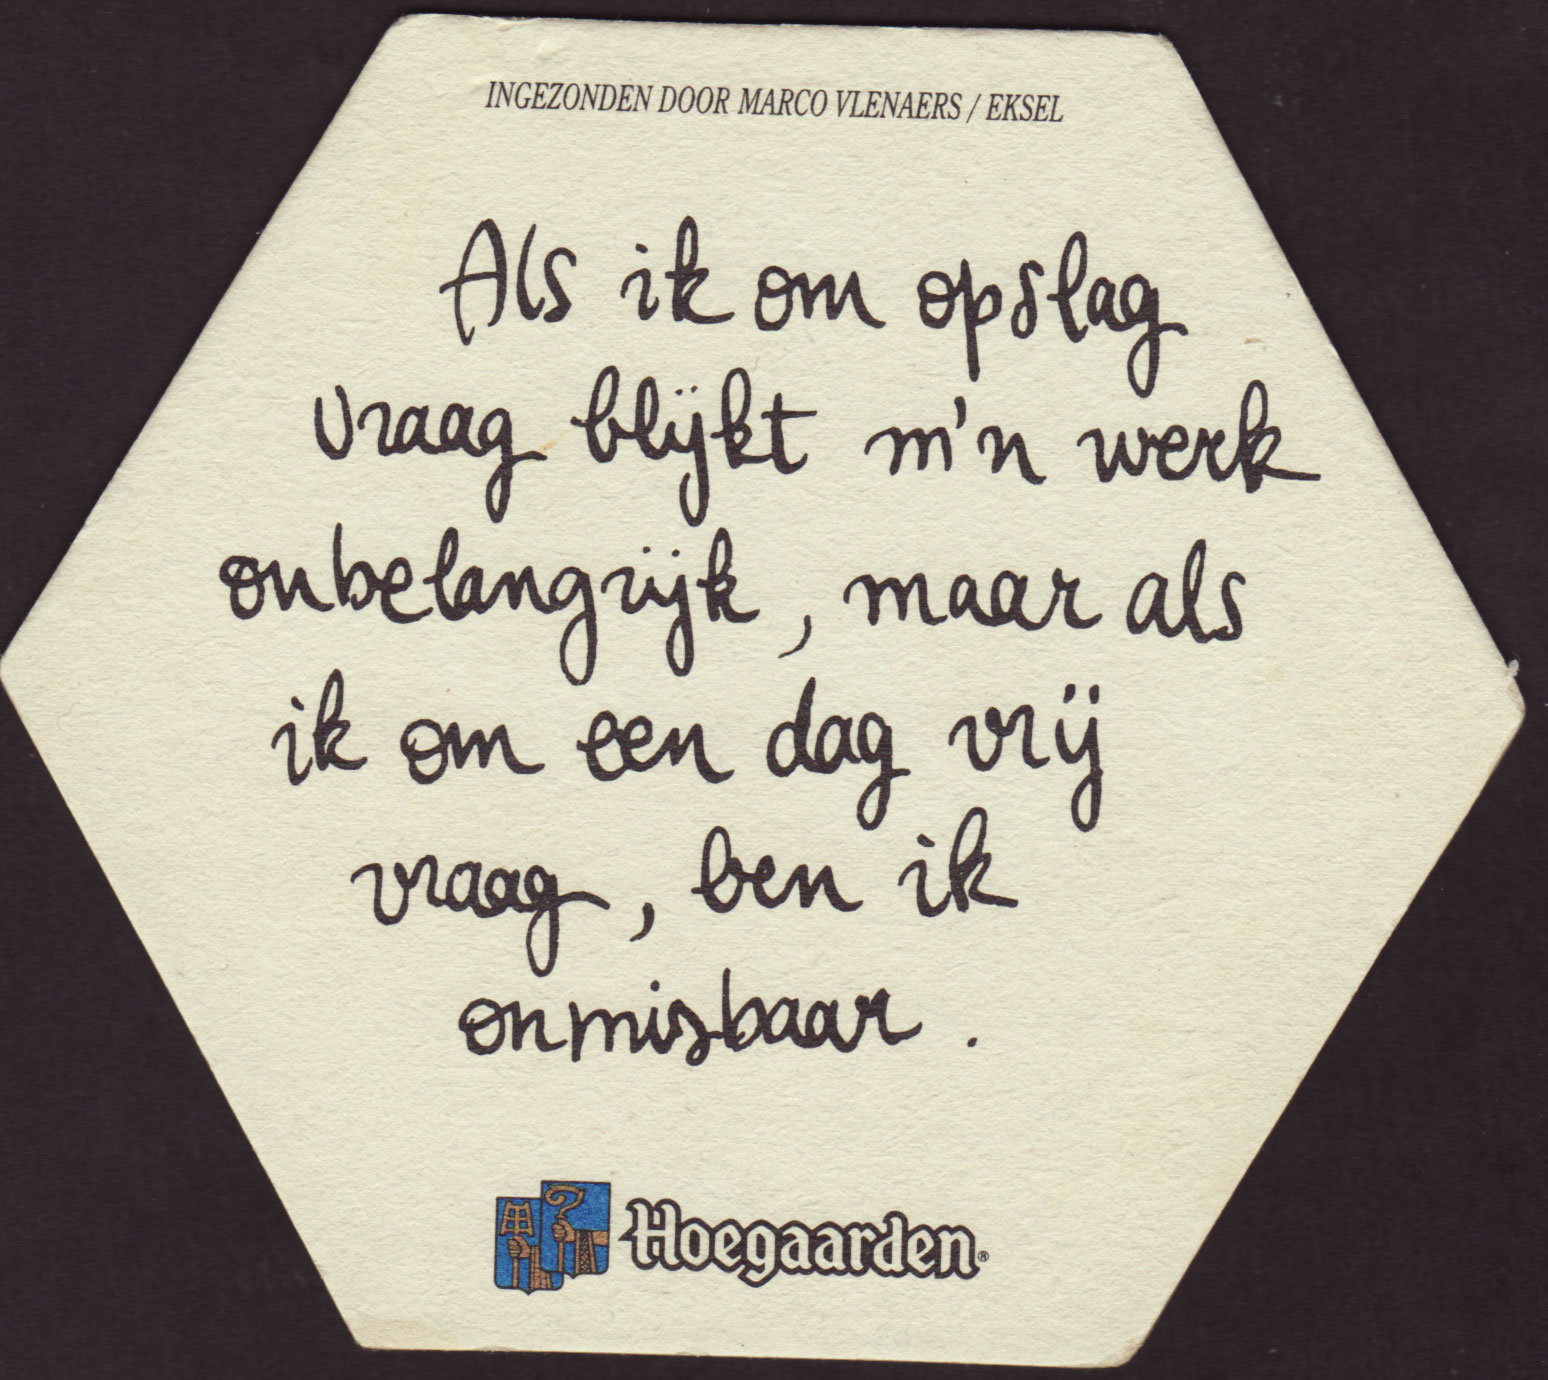 INGEZONDEN DOOR MARCO VLENAERS / EKSEL
Als ik om opslag
vraag blijkt m'n werk
onbelangrijk, maar als
ik om een dag vrij
vraag, ben ik
onmisbaar.
Hoegaarden®